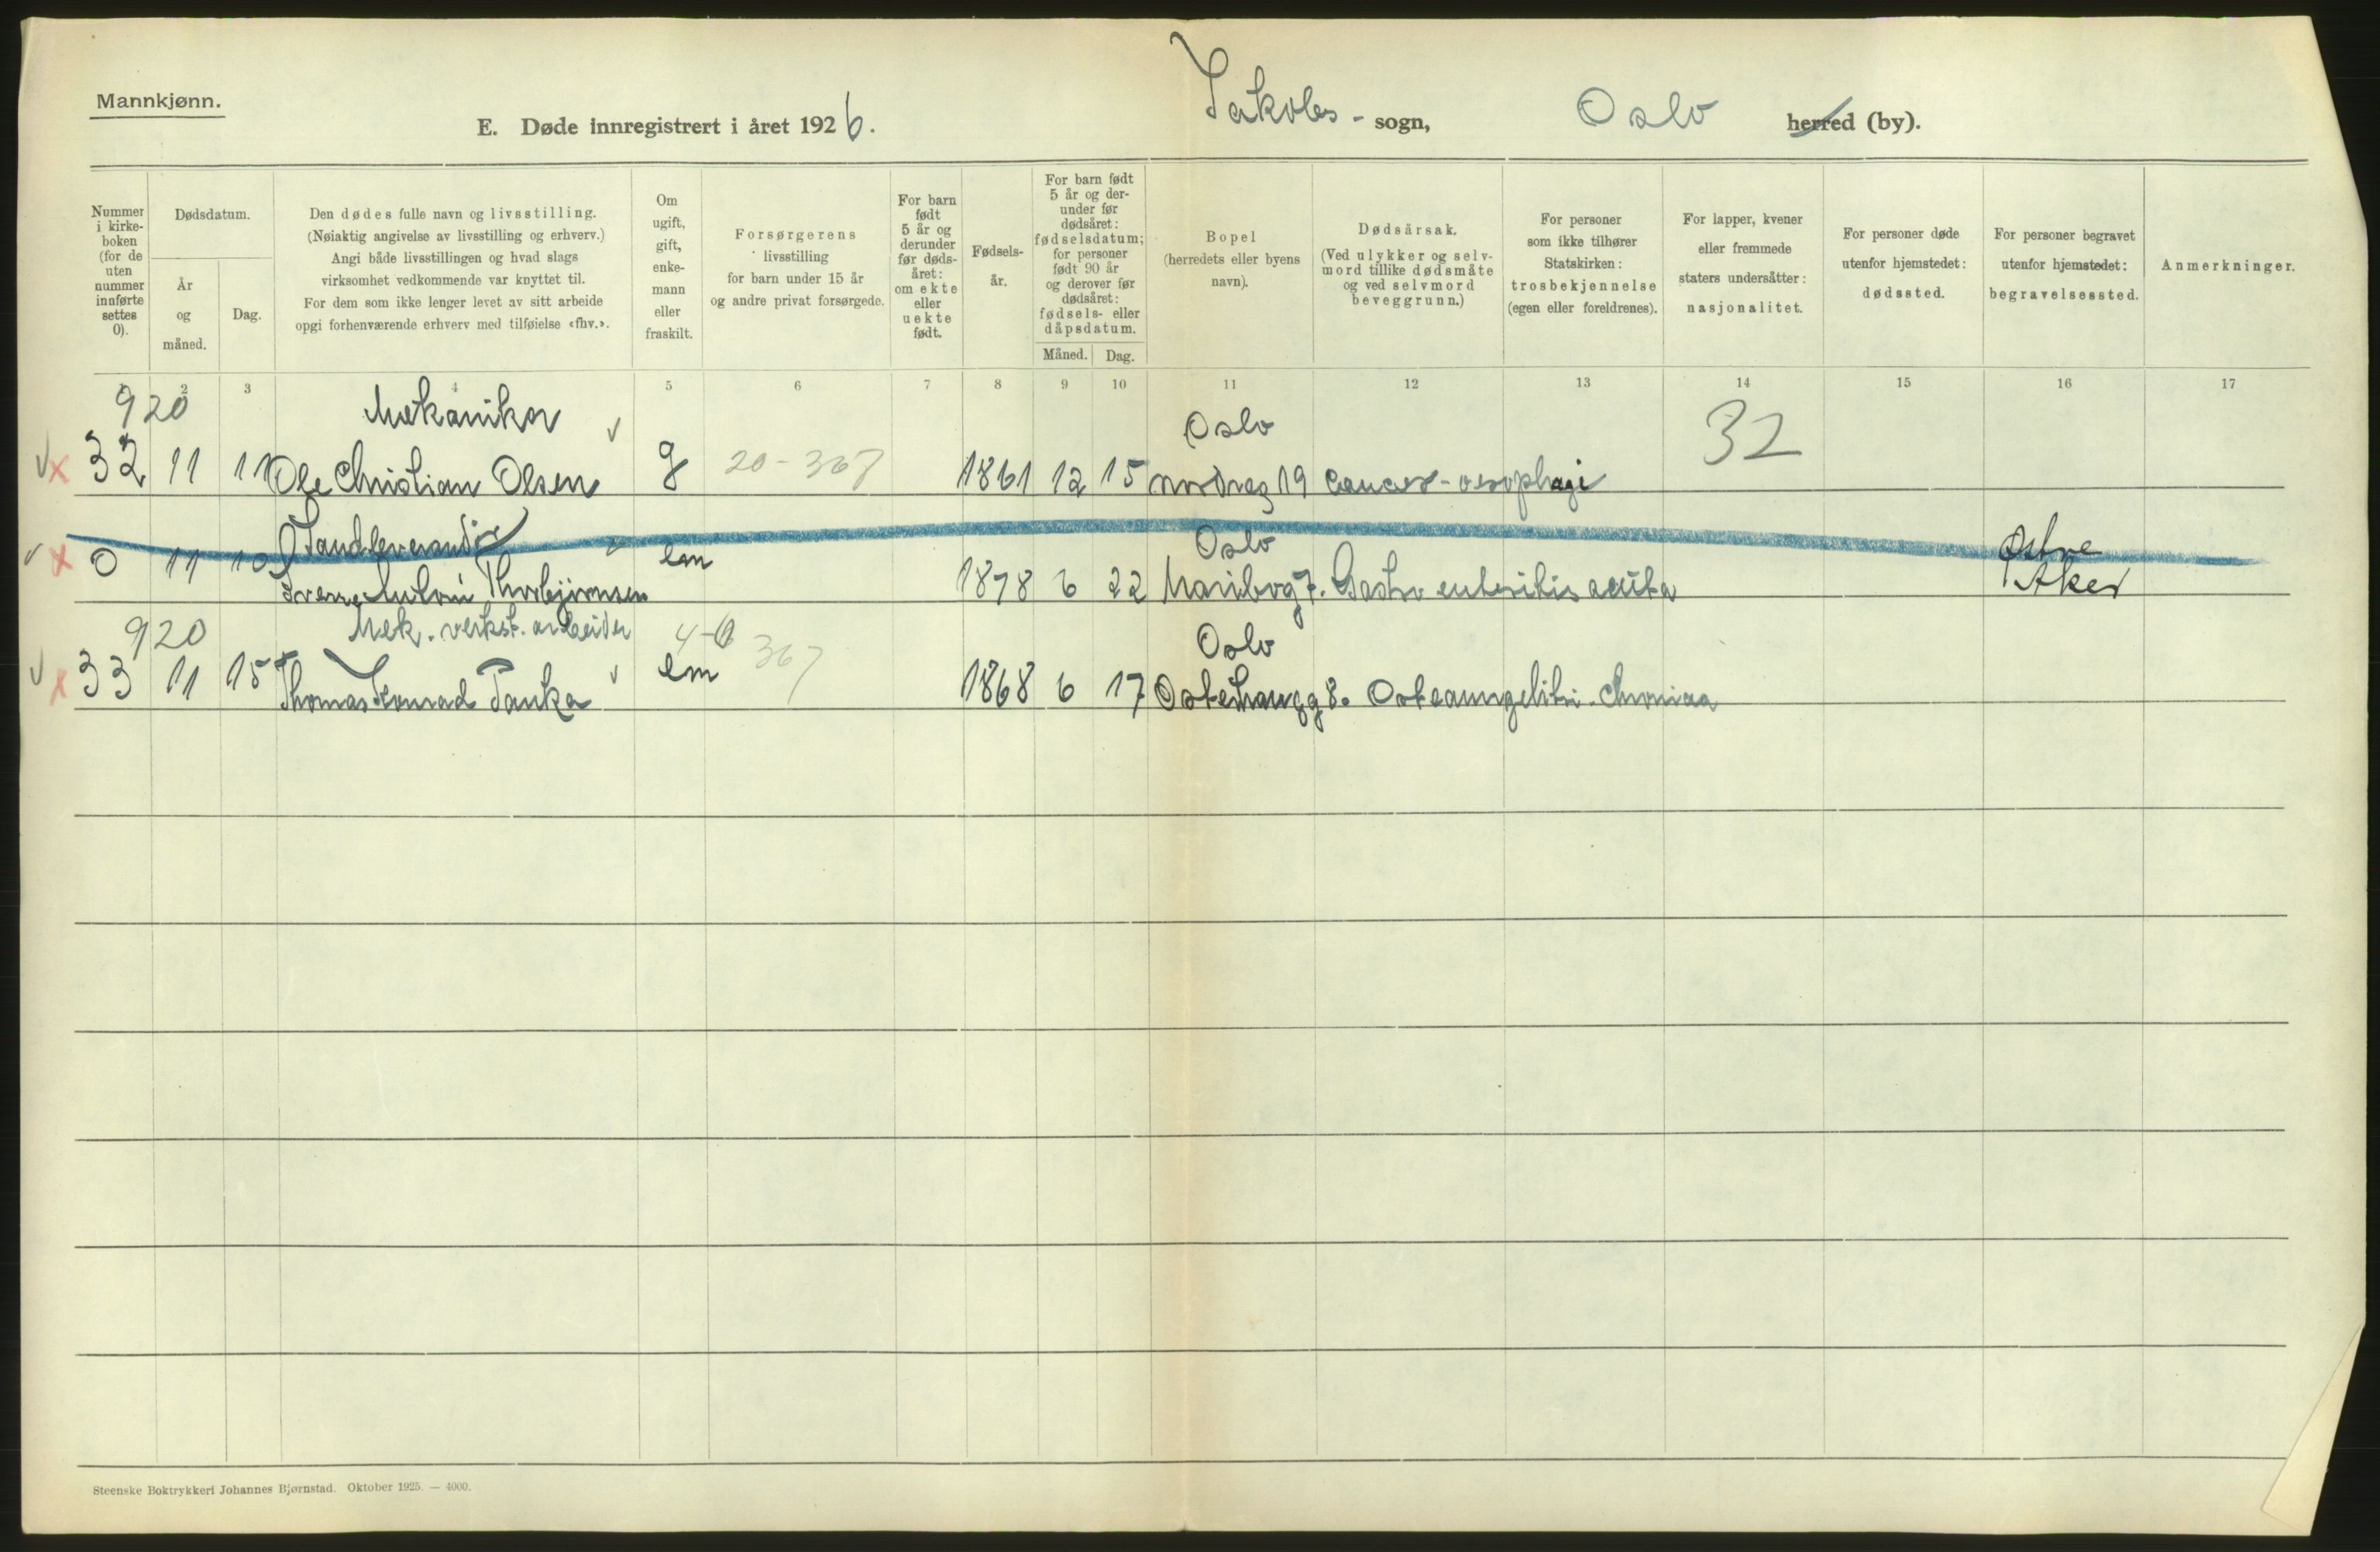 Mannkjønn.
E. Døde innregistrert i året 1926.
Jakobs - sogn,
Oslo herred (by).
Nummer i kirke- boken (for de uten nummer innførte settes 0).
Dødsdatum.
År og måned.
Dag.
Den dødes fulle navn og livsstilling.
(Nøiaktig angivelse av livsstilling og erhverv.)
Angi både livsstillingen og hvad slags
virksomhet vedkommende var knyttet til.
For dem som ikke lenger levet av sitt arbeide
opgi forhenværende erhverv med tilføielse «fhv.».
Om ugift, gift, enke- mann eller fraskilt.
Forsørgerens
livsstilling
for barn under 15 år
og andre privat forsørgede.
For barn født 5 år og derunder før døds- året: om ekte eller uekte født.
Fødsels- år.
For barn født 5 år og der- under før dødsåret: fødselsdatum; for personer født 90 år og derover før dødsåret: fødsels- eller dåpsdatum.
Måned. Dag.
Bopel
(herredets eller byens
navn).
Dødsårsak.
(Ved ulykker og selv-
mord tillike dødsmåte
og ved selvmord
beveggrunn.)
For personer
som ikke tilhører
Statskirken:
trosbekjennelse
(egen eller foreldrenes).
For lapper, kvener
eller fremmede
staters undersåtter:
nasjonalitet.
For personer døde
utenfor hjemstedet:
dødssted.
For personer begravet
utenfor hjemstedet:
begravelsessted.
Anmerkninger.
1 2 3 4 5 6 7 8 9 10 11 12 13 14 15 16 17
920 Mekaniker Oslo 32
32 11 11 Ole Christian Olsen g 20-367 1861 12 15 Nordreg 19 Cancer-oesophagi
Sandleverandør Oslo Østre
0 11 10 Thorbjørnsen em 1878 6 22 Maribog 7. Gastro enteritis acuta Aker
920 Mek. verkst. arbeider 4-0 367 Oslo
33 11 15 Thomas Konrad Panka em 1868 6 17 8.
Steenske Boktrykkeri Johannes Bjørnstad. Oktober 1925. — 4000.